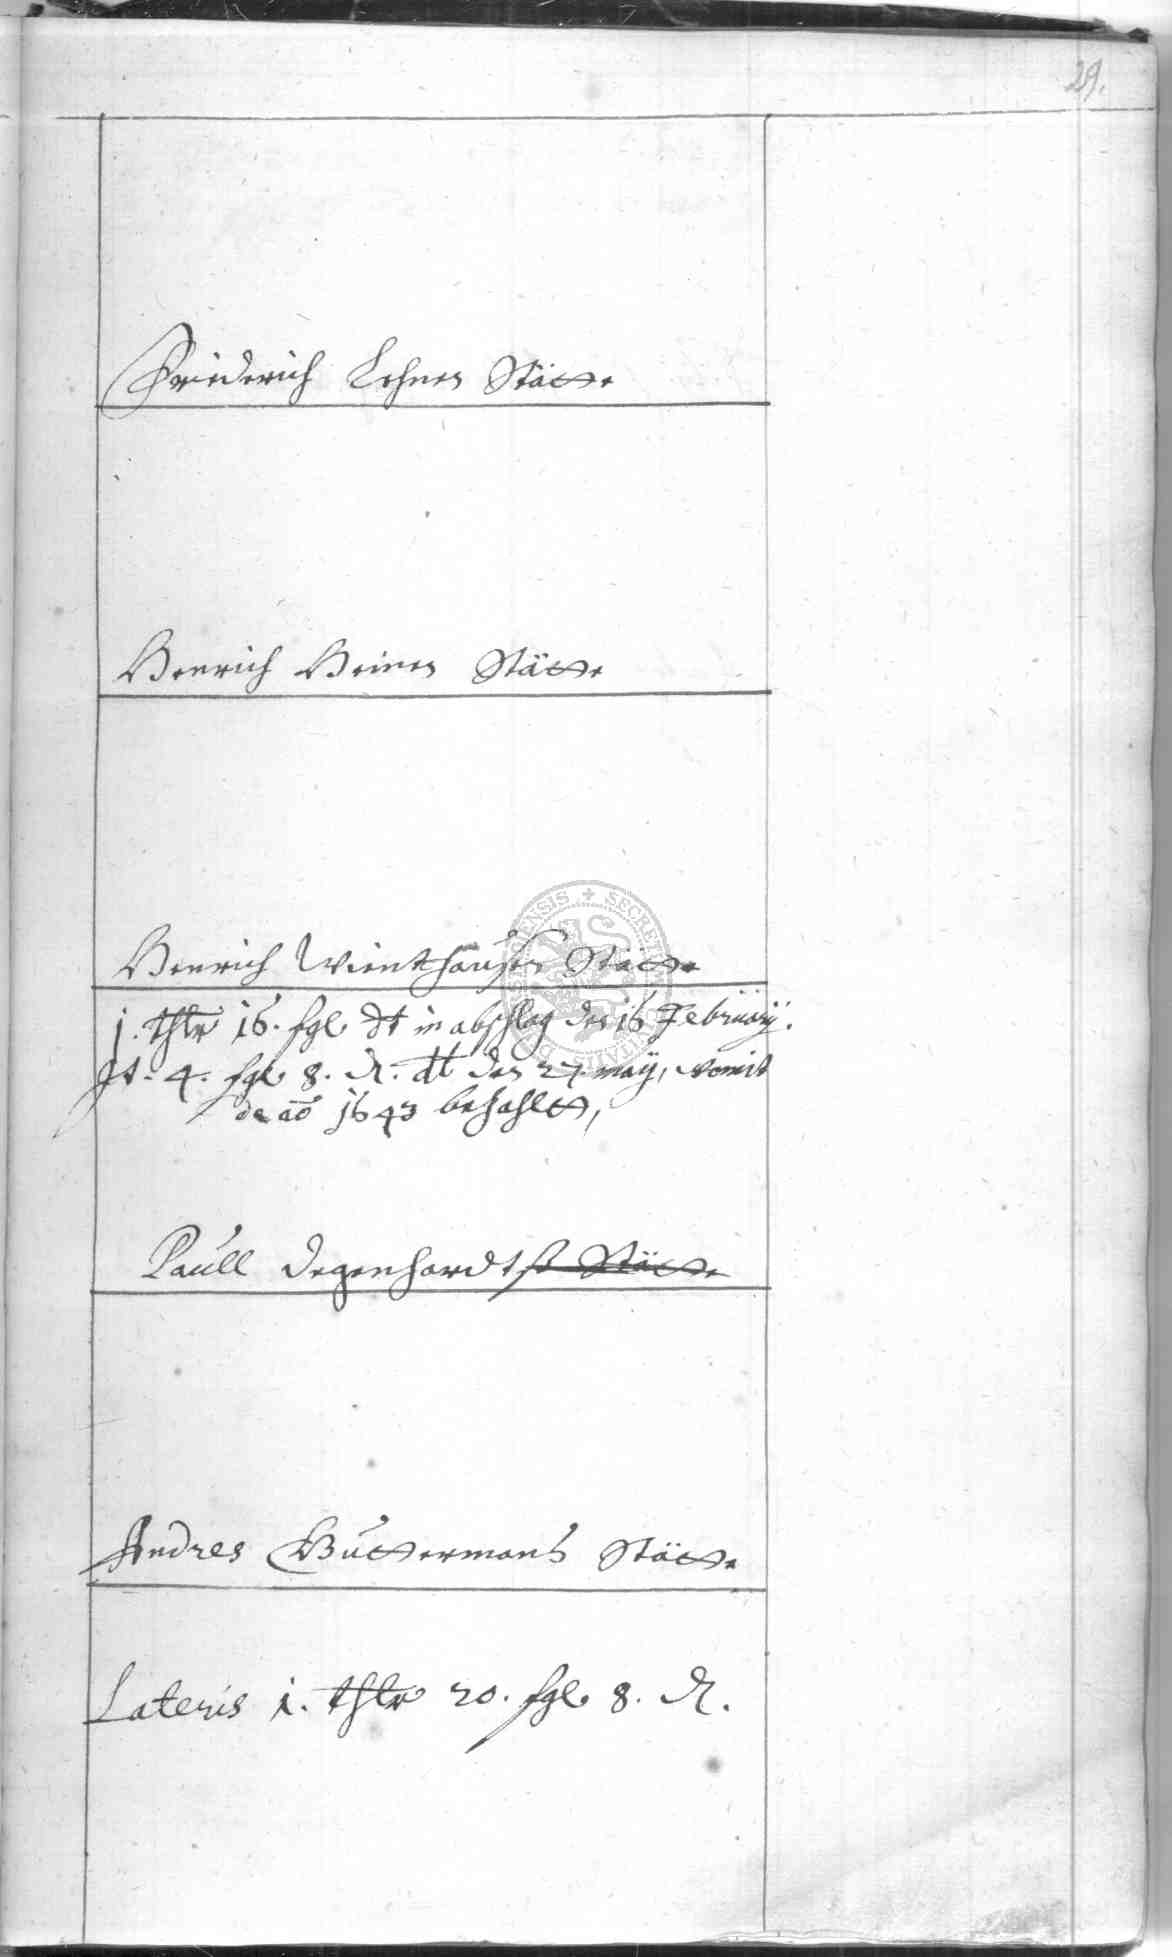 29.
Friederich Lehnen Stätte
Henrich Heinen Stätte
Henrich Wienthausen Stätte
j. thlr 16. sgl. dt in abschlag den 16 February.
It. 4. sgl. 8. d. dt den 27. may, womit
de ao 1643 bezahlt,
Paull Degenhardtß Stätte
Andres Buttermans Stätte
Lateris 1. thlr 20. sgl. 8. d.